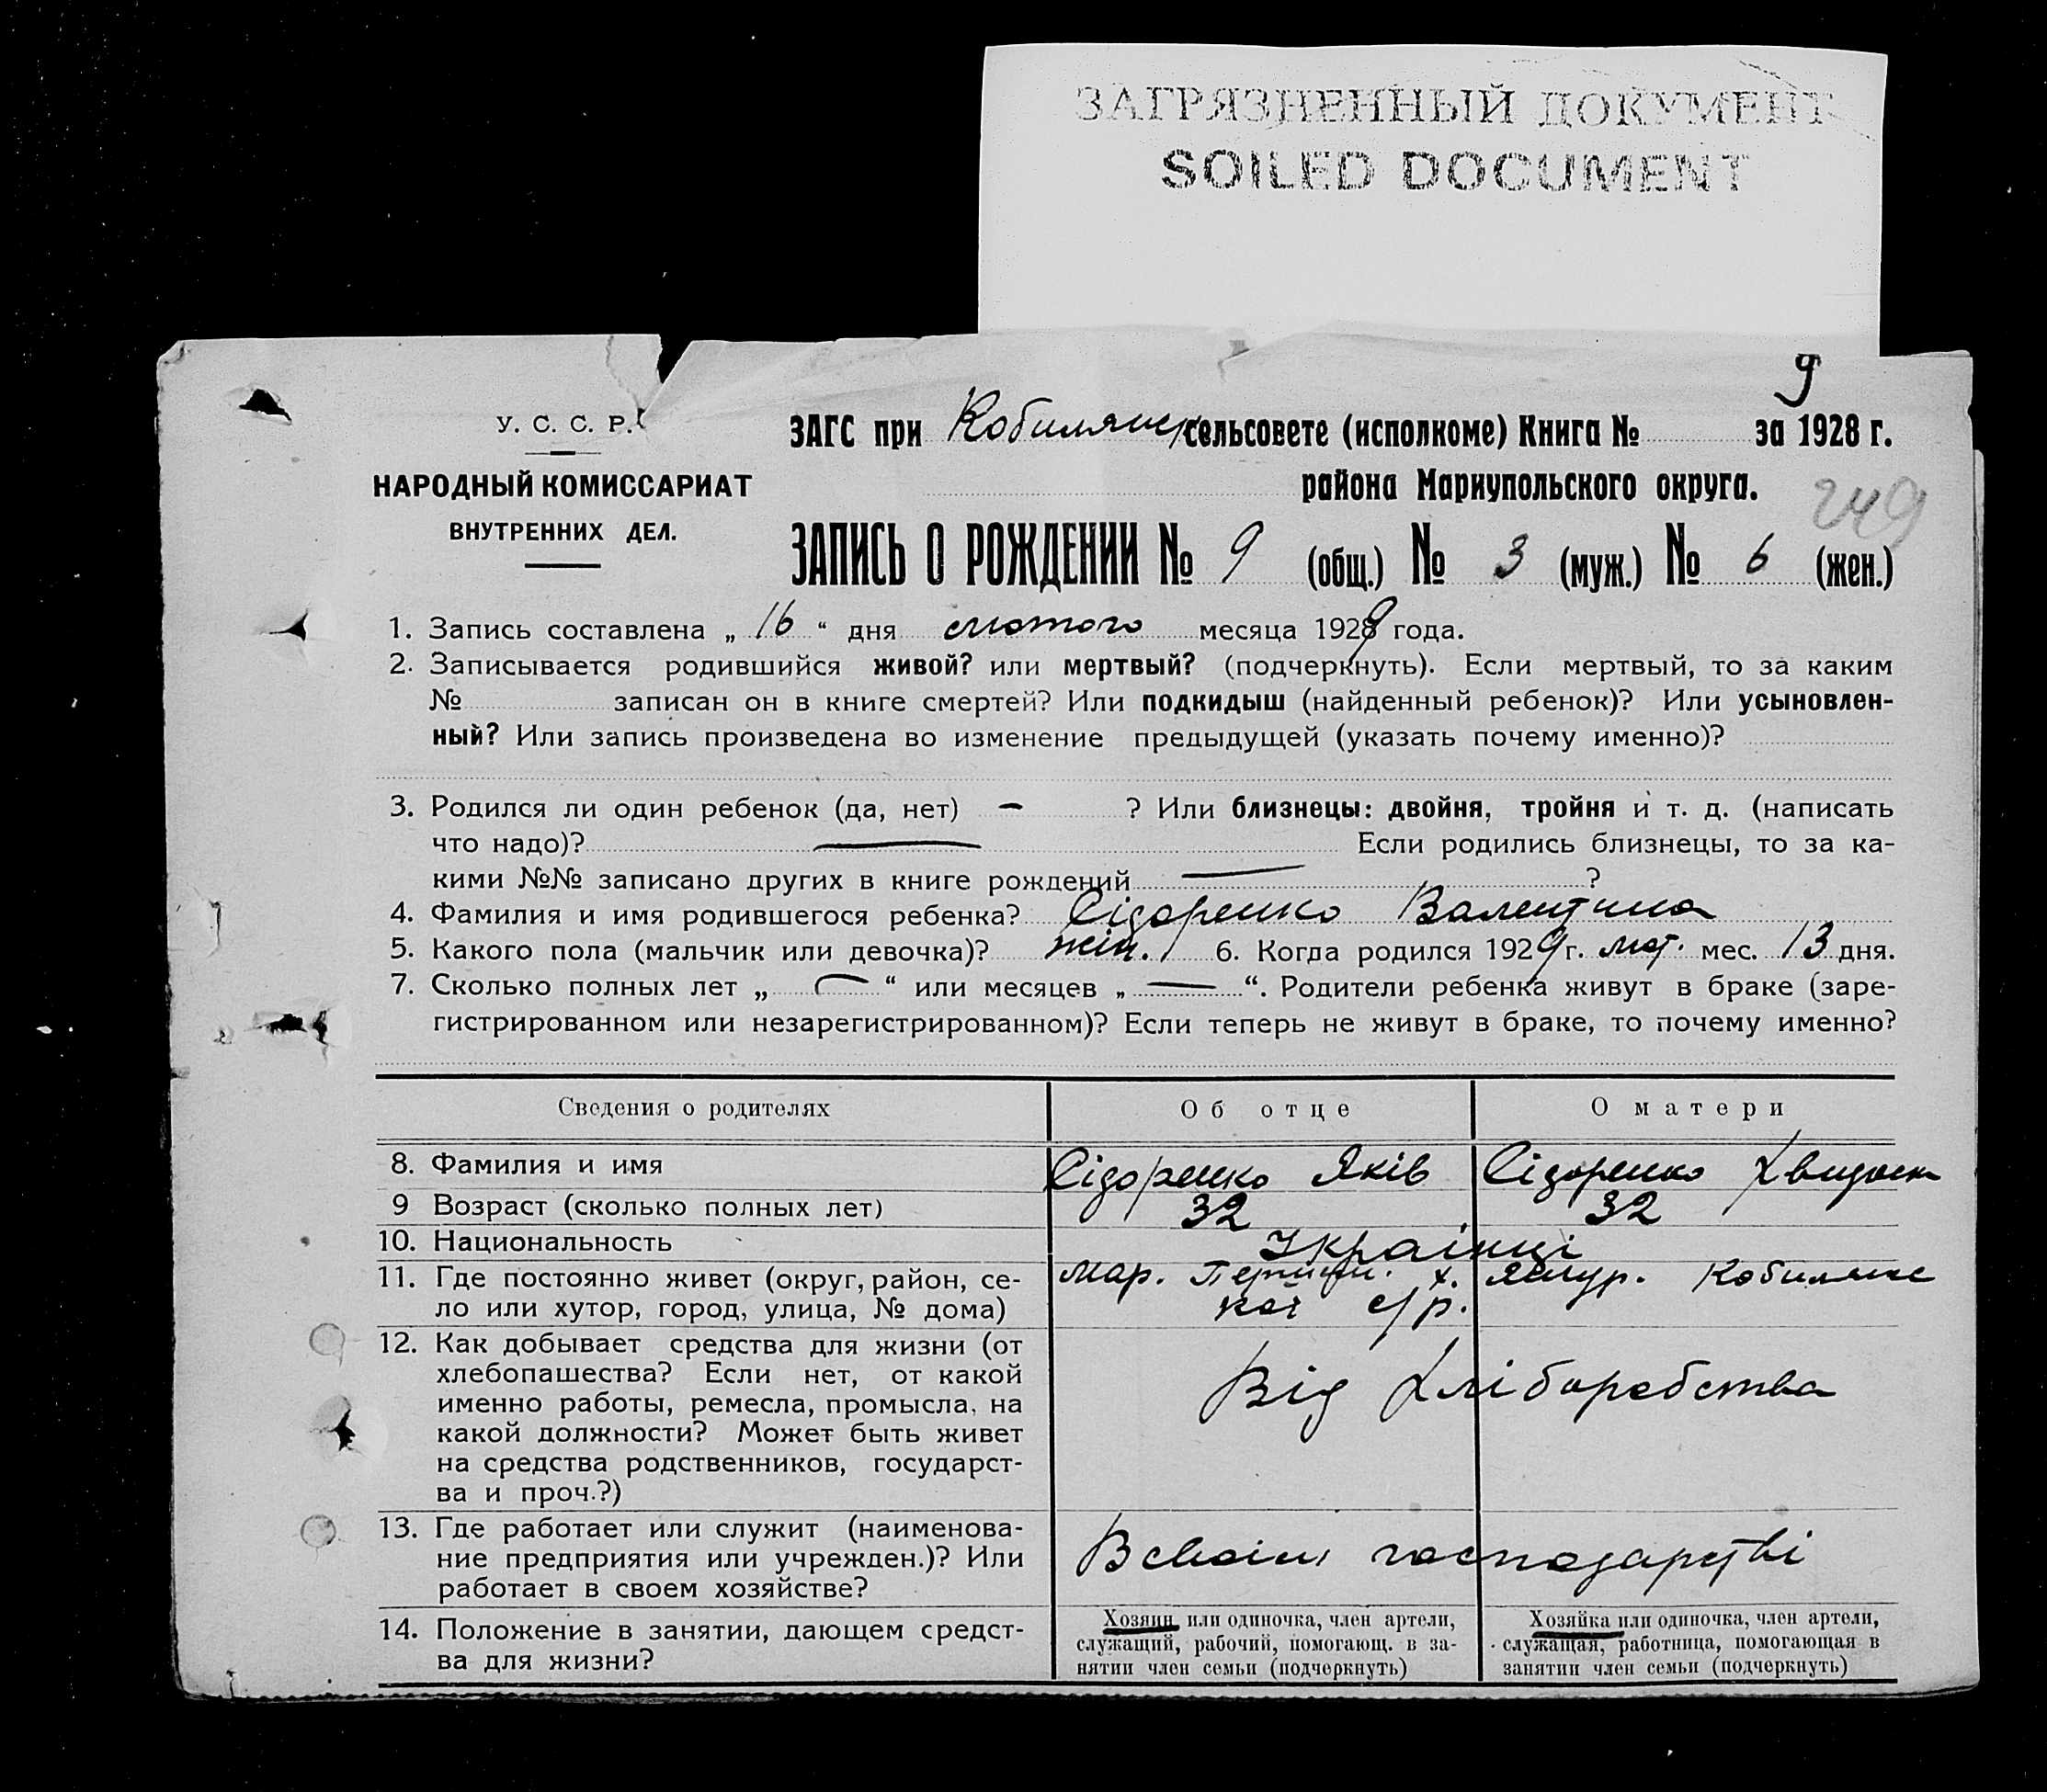 ЗАГРЯЗНЕННЫЙ ДОКУМЕНТ
SOILED DOCUMENT
9
У. С. С. Р.
ЗАГС при Кобилянск сельсовете (исполкоме) Книга № за 1928 г.
НАРОДНЫЙ КОМИССАРИАТ
района Мариупольского округа.
249
ВНУТРЕННИХ ДЕЛ.
ЗАПИСЬ О РОЖДЕНИИ № 9 (общ.) № 3 (муж.) № 6 (жен.)
1. Запись составлена „ 16 “ дня лютого месяца 1929 года.
2. Записывается родившийся живой? или мертвый? (подчеркнуть). Если мертвый, то за каким
№ записан он в книге смертей? Или подкидыш (найденный ребенок)? Или усыновлен-
ный? Или запись произведена во изменение предыдущей (указать почему именно)?
3. Родился ли один ребенок (да, нет) — ? Или близнецы: двойня, тройня и т. д. (написать
что надо)? — Если родились близнецы, то за ка-
кими №№ записано других в книге рождений — ?
4. Фамилия и имя родившегося ребенка? Сідоренко Валентина
5. Какого пола (мальчик или девочка)? жін. 6. Когда родился 1929 г. лют. мес. 13 дня.
7. Сколько полных лет „ — “ или месяцев „ — “. Родители ребенка живут в браке (заре-
гистрированном или незарегистрированном)? Если теперь не живут в браке, то почему именно?
Сведения о родителях
Об отце
О матери
8. Фамилия и имя
Сідоренко Яків
Сідоренко
9 Возраст (сколько полных лет)
32
32
10. Национальность
Українці
11. Где постоянно живет (округ, район, се-
ло или хутор, город, улица, № дома)
Мар. х. Кобилянс
кої с/р.
12. Как добывает средства для жизни (от
хлебопашества? Если нет, от какой
именно работы, ремесла, промысла, на
какой должности? Может быть живет
на средства родственников, государст-
ва и проч.?)
Від хліборобства
13. Где работает или служит (наименова-
ние предприятия или учрежден.)? Или
работает в своем хозяйстве?
В своїм господарстві
14. Положение в занятии, дающем средст-
ва для жизни?
Хозяин или одиночка, член артели,
служащий, рабочий, помогающ. в за-
нятии член семьи (подчеркнуть)
Хозяйка или одиночка, член артели,
служащая, работница, помогающая в
занятии член семьи (подчеркнуть)